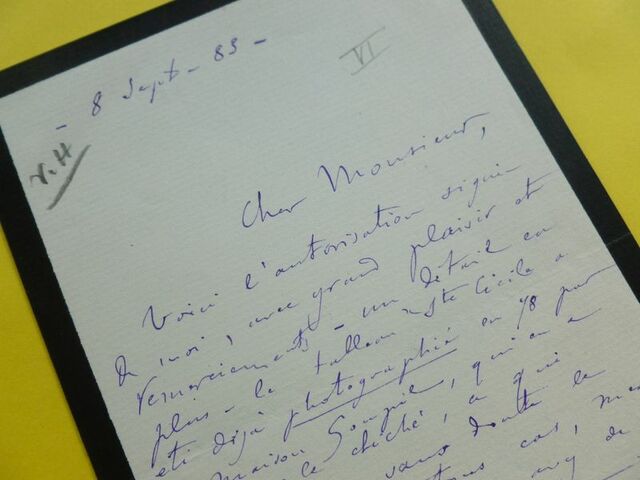 - 8 Sept - 83 -
VI
V.H
Cher Monsieur,
Voici l'autorisation signée
de moi, avec grand plaisir et
remerciements - un détail en
plus - le tableau Ste Cécile a
été déjà photographié en 78 par
maison Goupil, qui en a
le cliché, a qui
sans doute le
cas, me
de